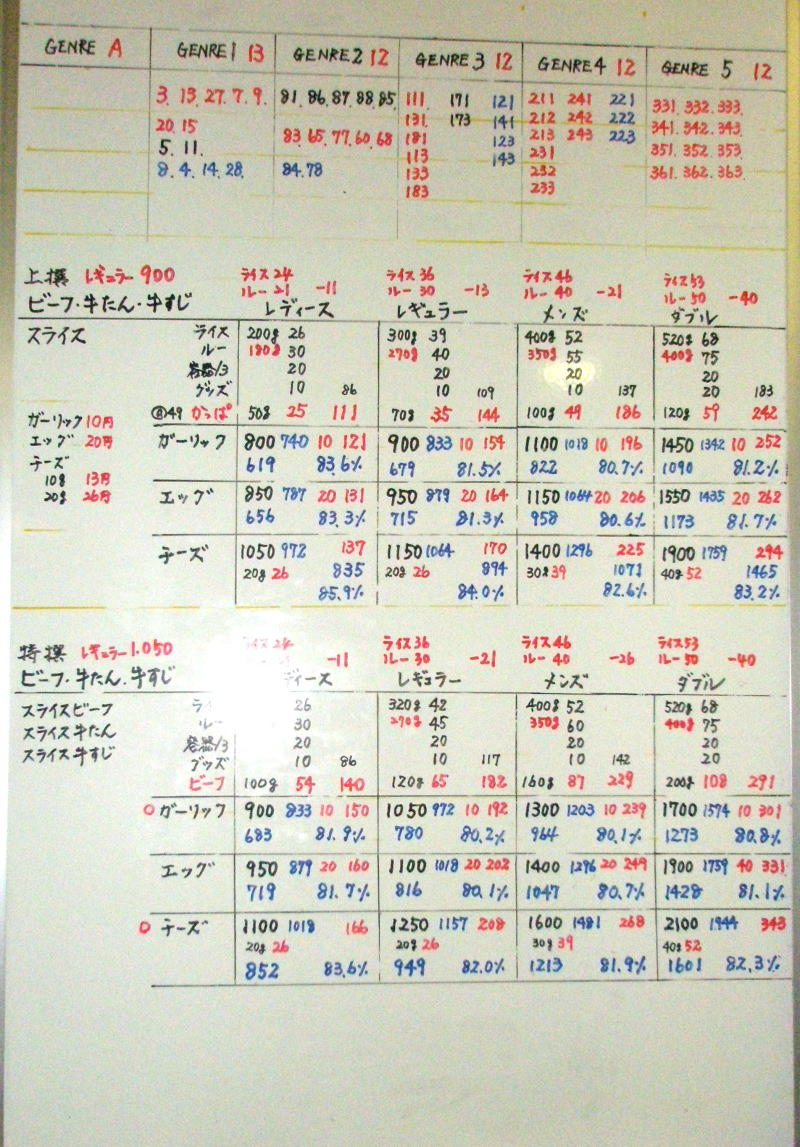 GENRE A GENRE1 13 GENRE2 12 GENRE3 12 GENRE4 12 GENRE 5 12
3. 13. 27. 7. 9. 81. 86. 87. 88. 85. 111 171 121 211 241 221 331. 332. 333.
20. 15 83. 65. 77. 60. 68 131 173 141 212 242 222 341. 342. 343.
5. 11. 181 123 213 243 223 351. 352. 353.
8. 4. 14. 28. 84. 78 113 143 231 361. 362. 363.
133 232
183 233
上撰 レギュラー900 ライス24 ライス36 ライス46 ライス53
ルー21 -11 ルー30 -13 ルー40 -21 ルー50 -40
ビーフ・牛たん・牛すじ レディース レギュラー メンズ ダブル
スライス ライス 200g 26 300g 39 400g 52 520g 68
ルー 180g 30 270g 40 350g 55 400g 75
容器/3 20 20 20 20
グッズ 10 86 10 109 10 137 20 183
49 かっぱ 50g 25 111 70g 35 144 100g 49 186 120g 59 242
ガーリック10円 ガーリック 800 740 10 121 900 833 10 154 1100 1018 10 196 1450 1342 10 252
エッグ 20円 619 83.6% 679 81.5% 822 80.7% 1090 81.2%
チーズ
10g 13円
20g 26円
エッグ 850 787 20 131 950 879 20 164 1150 1064 20 206 1550 1435 20 262
656 83.3% 715 81.3% 958 80.6% 1173 81.7%
チーズ 1050 972 137 1150 1064 170 1400 1296 225 1900 1759 294
20g 26 835 20g 26 894 30g 39 1071 40g 52 1465
85.9% 84.0% 82.6% 83.2%
特撰 レギュラー1.050 ライス24 ライス36 ライス46 ライス53
-11 ルー30 -21 ルー40 -26 ルー50 -40
ビーフ・牛たん・牛すじ ディース レギュラー メンズ ダブル
スライスビーフ ライ 26 320g 42 400g 52 520g 68
スライス牛たん ルー 30 270g 45 350g 60 400g 75
スライス牛すじ 容器/3 20 20 20 20
グッズ 10 86 10 117 10 142 20
ビーフ 100g 54 140 120g 65 182 160g 87 229 200g 108 291
○ ガーリック 900 833 10 150 1050 972 10 192 1300 1203 10 239 1700 1574 10 301
683 81.9% 780 80.2% 964 80.1% 1273 80.8%
エッグ 950 879 20 160 1100 1018 20 202 1400 1296 20 249 1900 1759 40 331
719 81.7% 816 80.1% 1047 80.7% 1428 81.1%
○ チーズ 1100 1018 166 1250 1157 208 1600 1481 268 2100 1944 343
20g 26 20g 26 30g 39 40g 52
852 83.6% 949 82.0% 1213 81.9% 1601 82.3%